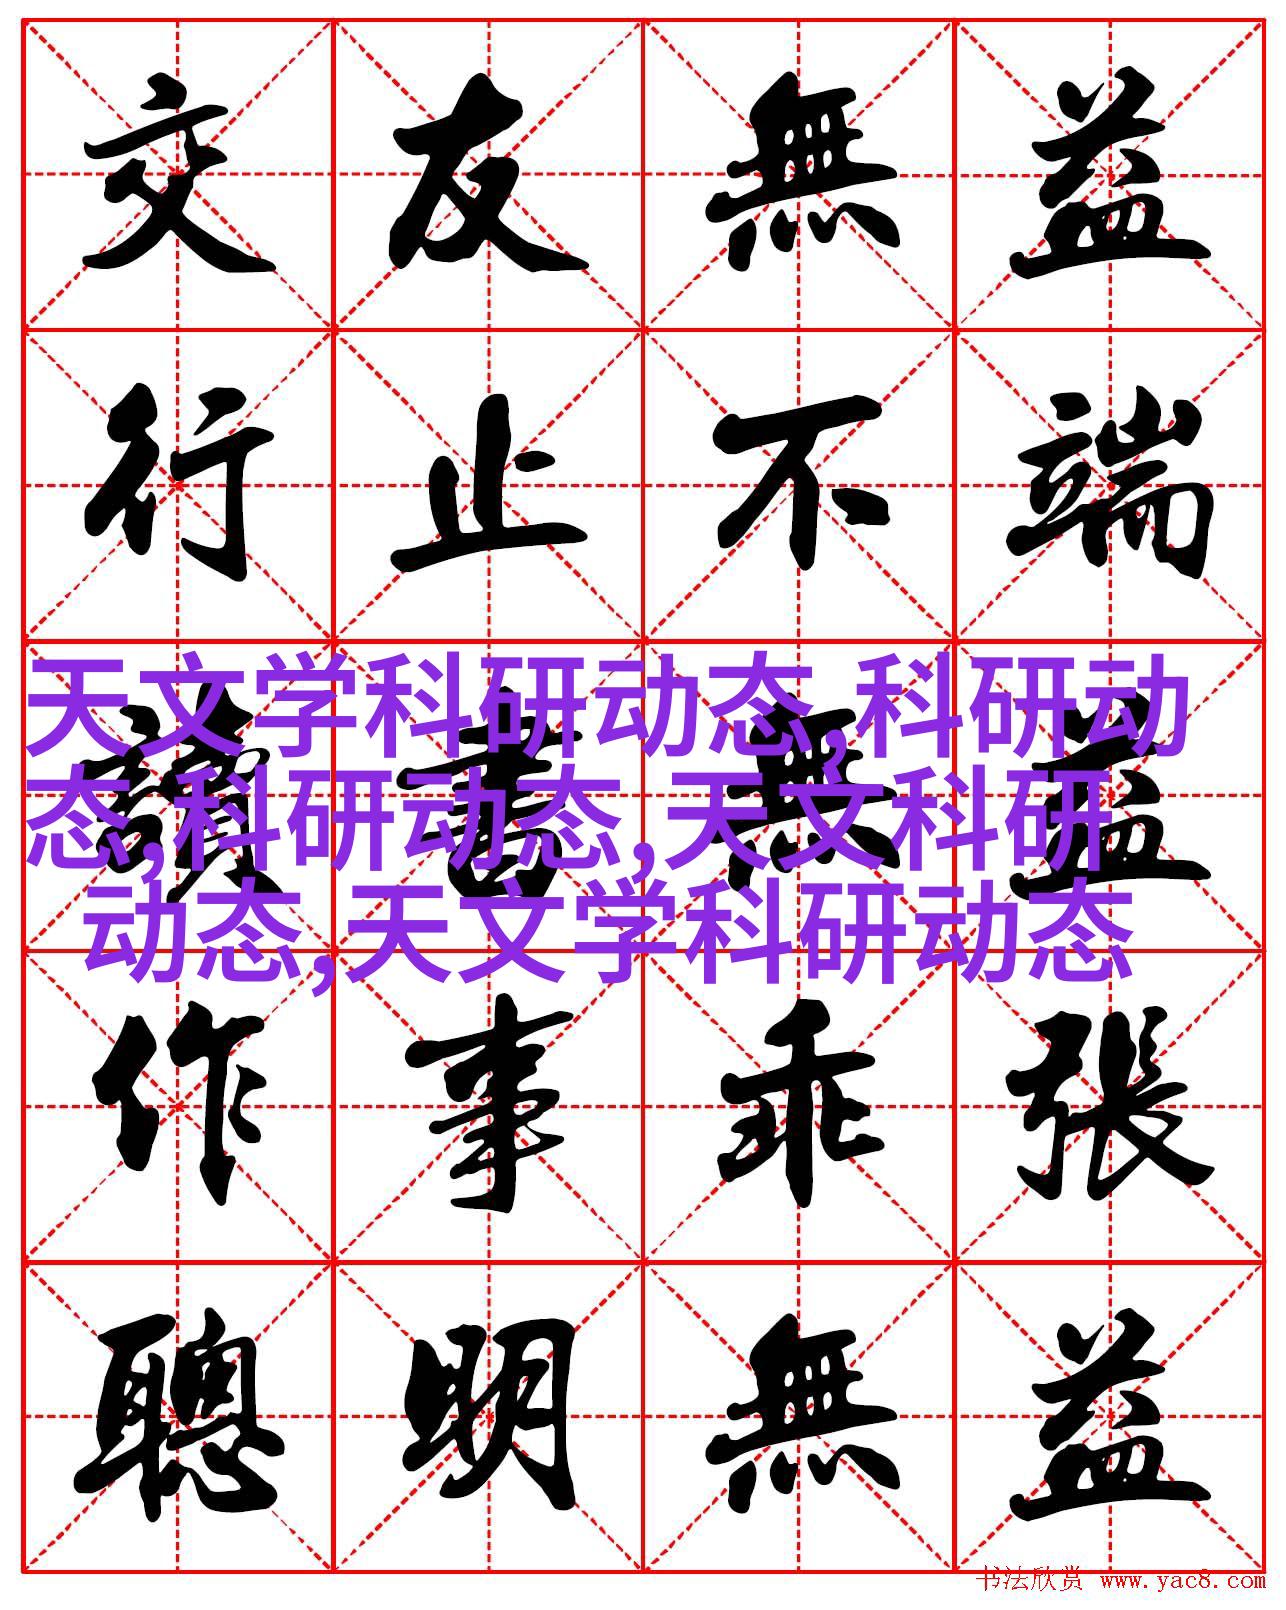 交友無益
行止不端
讀書無益
作事乖張
聰明無益
天文学科研动态,科研动
态,科研动态,天文科研
动态,天文学科研动态
书法欣赏 www.yac8.com